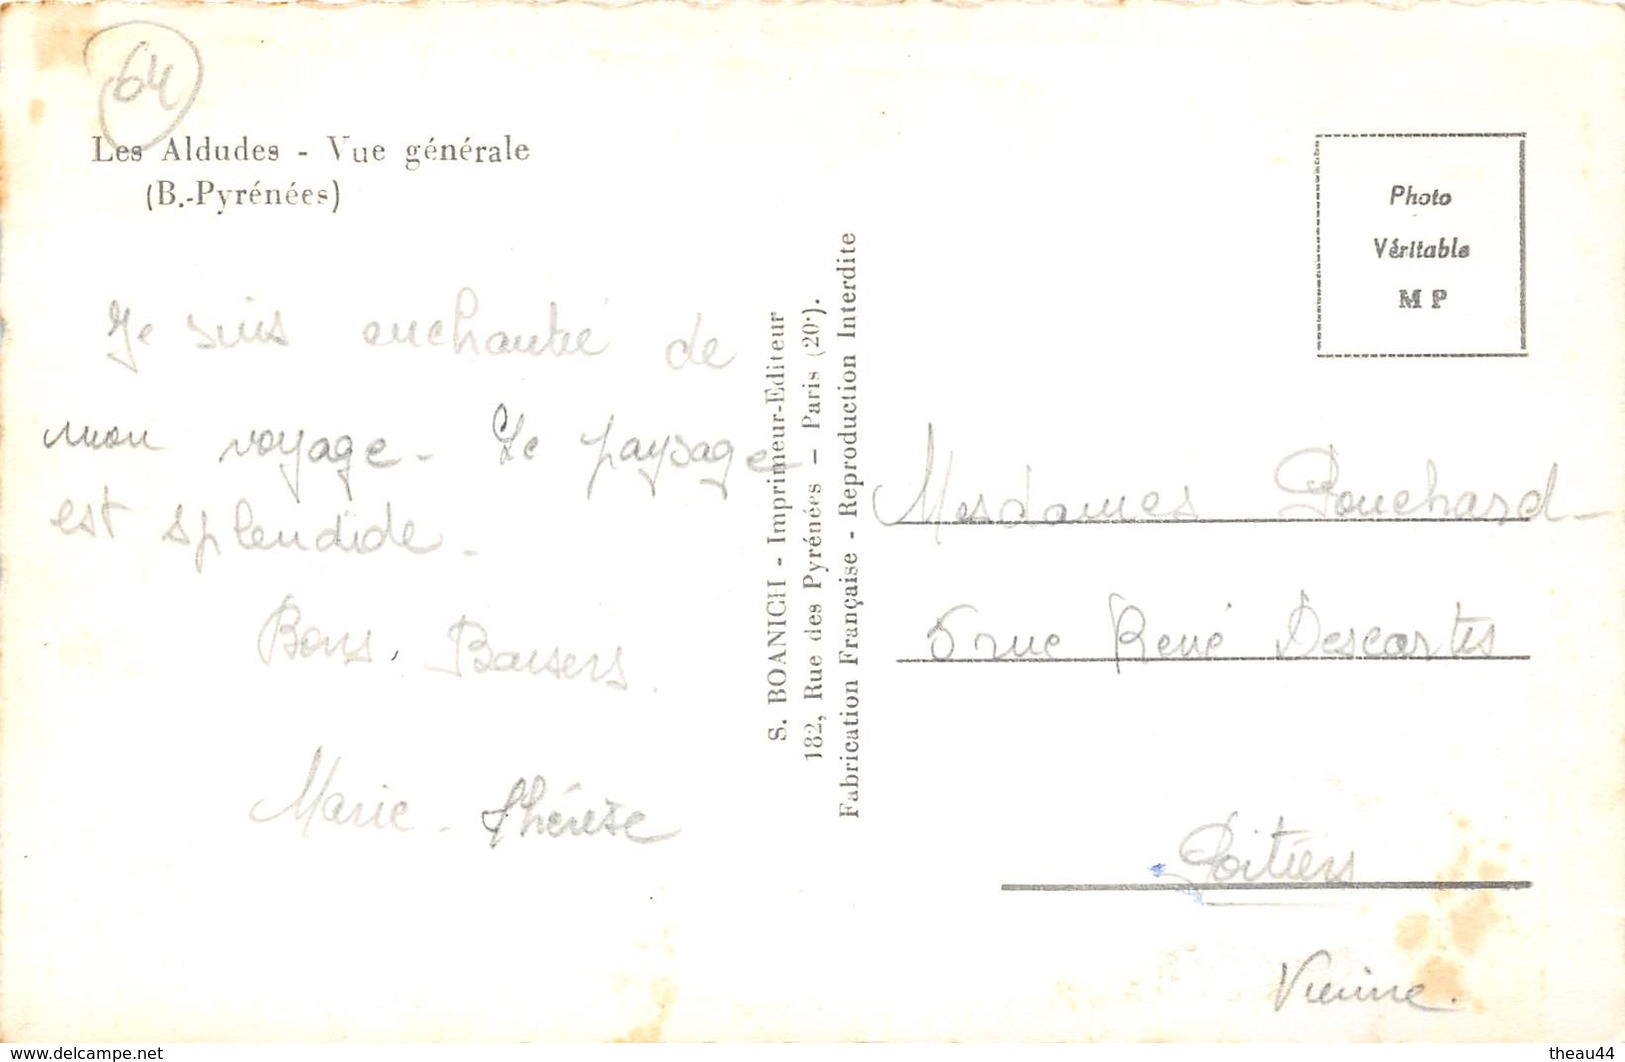 64
Les Aldudes - Vue générale
(B.-Pyrénées)
Je suis enchantée de
mon voyage - Le paysage
est splendide -
Bons, Baisers.
Marie - Thérèse
S. BOANICH - Imprimeur-Editeur
182, Rue des Pyrénées - Paris (20·).
Fabrication Française - Reproduction Interdite
Photo
Véritable
M P
Mesdames Pouchard -
5 rue René Descartes
Poitiers
Vienne.
www.delcampe.net
theau44